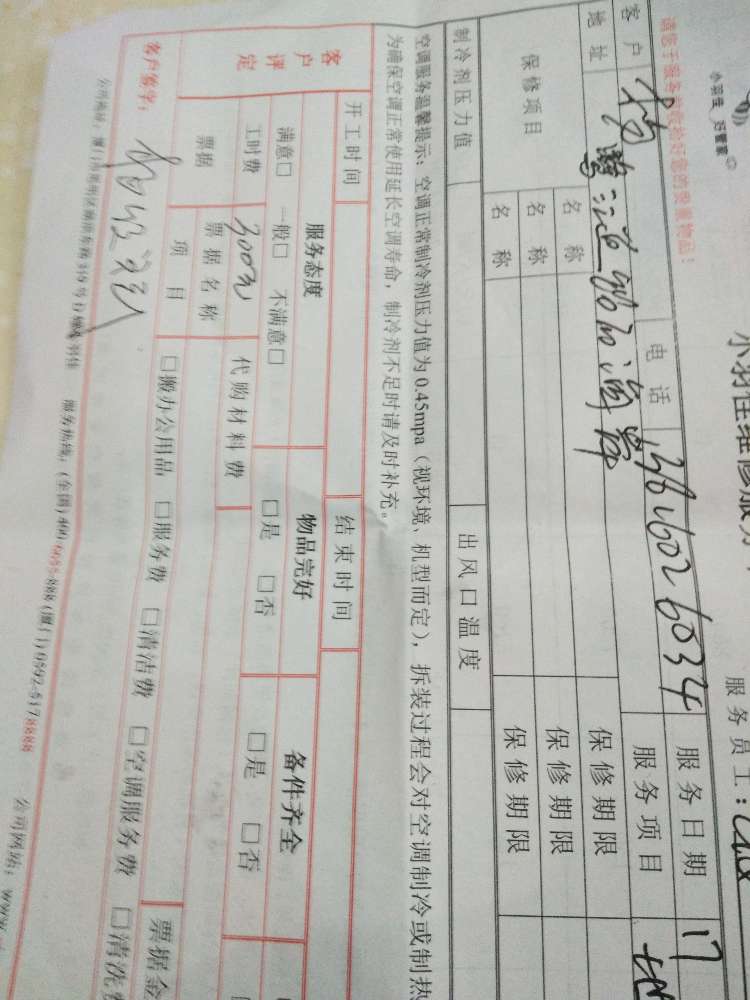 小羽佳 好管家
小羽佳维修服务
服务员工:
请您于服务
的贵重物品!
客户 杨 电话 13616026034 服务日期 17
地址 服务项目
保修项目 名称 保修期限
名称 保修期限
名称 保修期限
制冷剂压力值 出风口温度
空调服务温馨提示:空调正常制冷剂压力值为0.45mpa(视环境、机型而定),拆装过程会对空调制冷或制热
为确保空调正常使用延长空调寿命,制冷剂不足时请及时补充。
开工时间 结束时间
客户评定 服务态度 物品完好 备件齐全
满意□ 一般□ 不满意□ □是 □否 □是 □否
工时费 300元 代购材料费
票据 票据名称 票据金
项目 □搬办公用品 □服务费 □清洁费 □空调服务费 □清洗费
客户签字:
公司地址:厦门市 服务热线:(全国)400 (厦门)0592-517 公司网站:www.